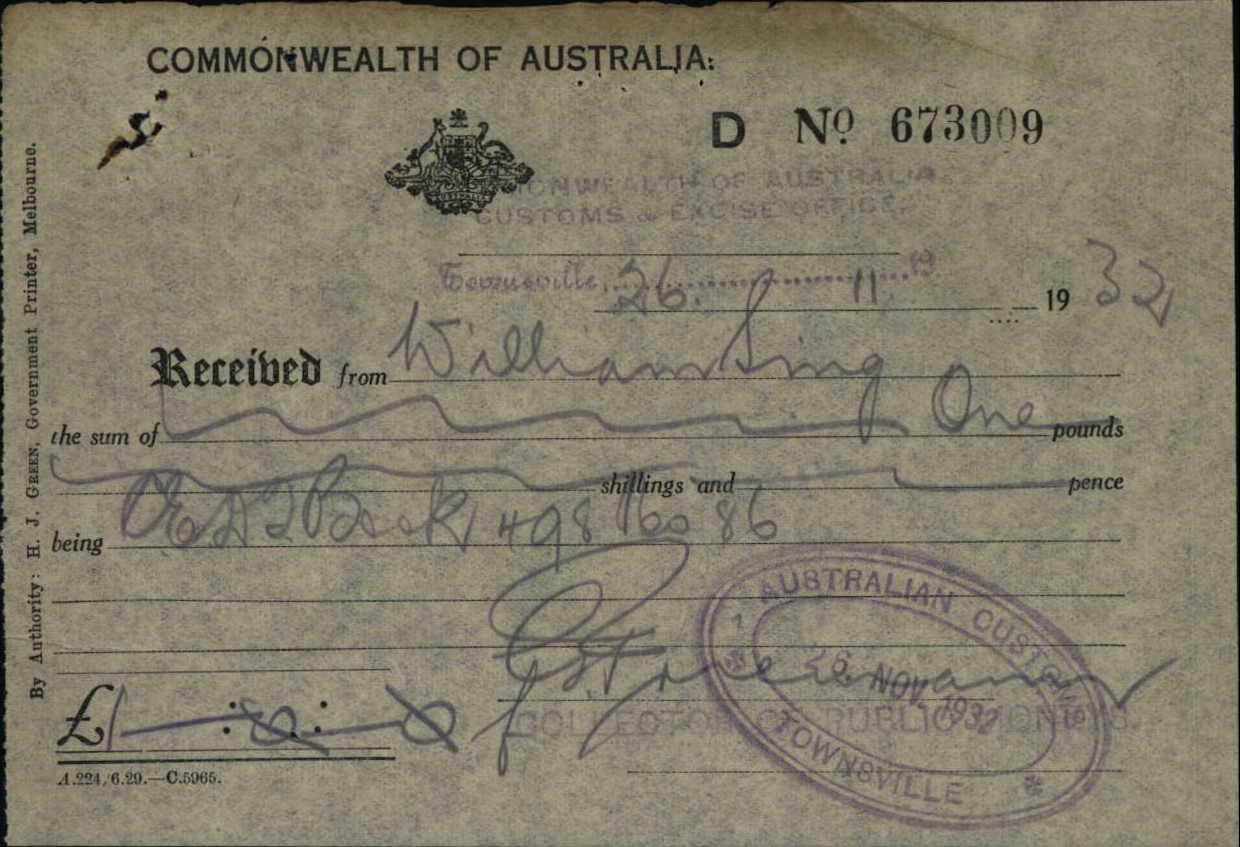 COMMONWEALTH OF AUSTRALIA.
D No 673009
COMMONWEALTH OF AUSTRALIA
CUSTOMS & EXCISE OFFICE,
Townsville, 26. 11. 19 32
Received from William Sing
the sum of One pounds
shillings and pence
being Book 498 160 86
AUSTRALIAN CUSTOMS
26 NOV 1932
TOWNSVILLE
£1
COLLECTOR OF PUBLIC MONIES.
A.224/6.29.—C.5965.
By Authority: H. J. GREEN, Government Printer, Melbourne.